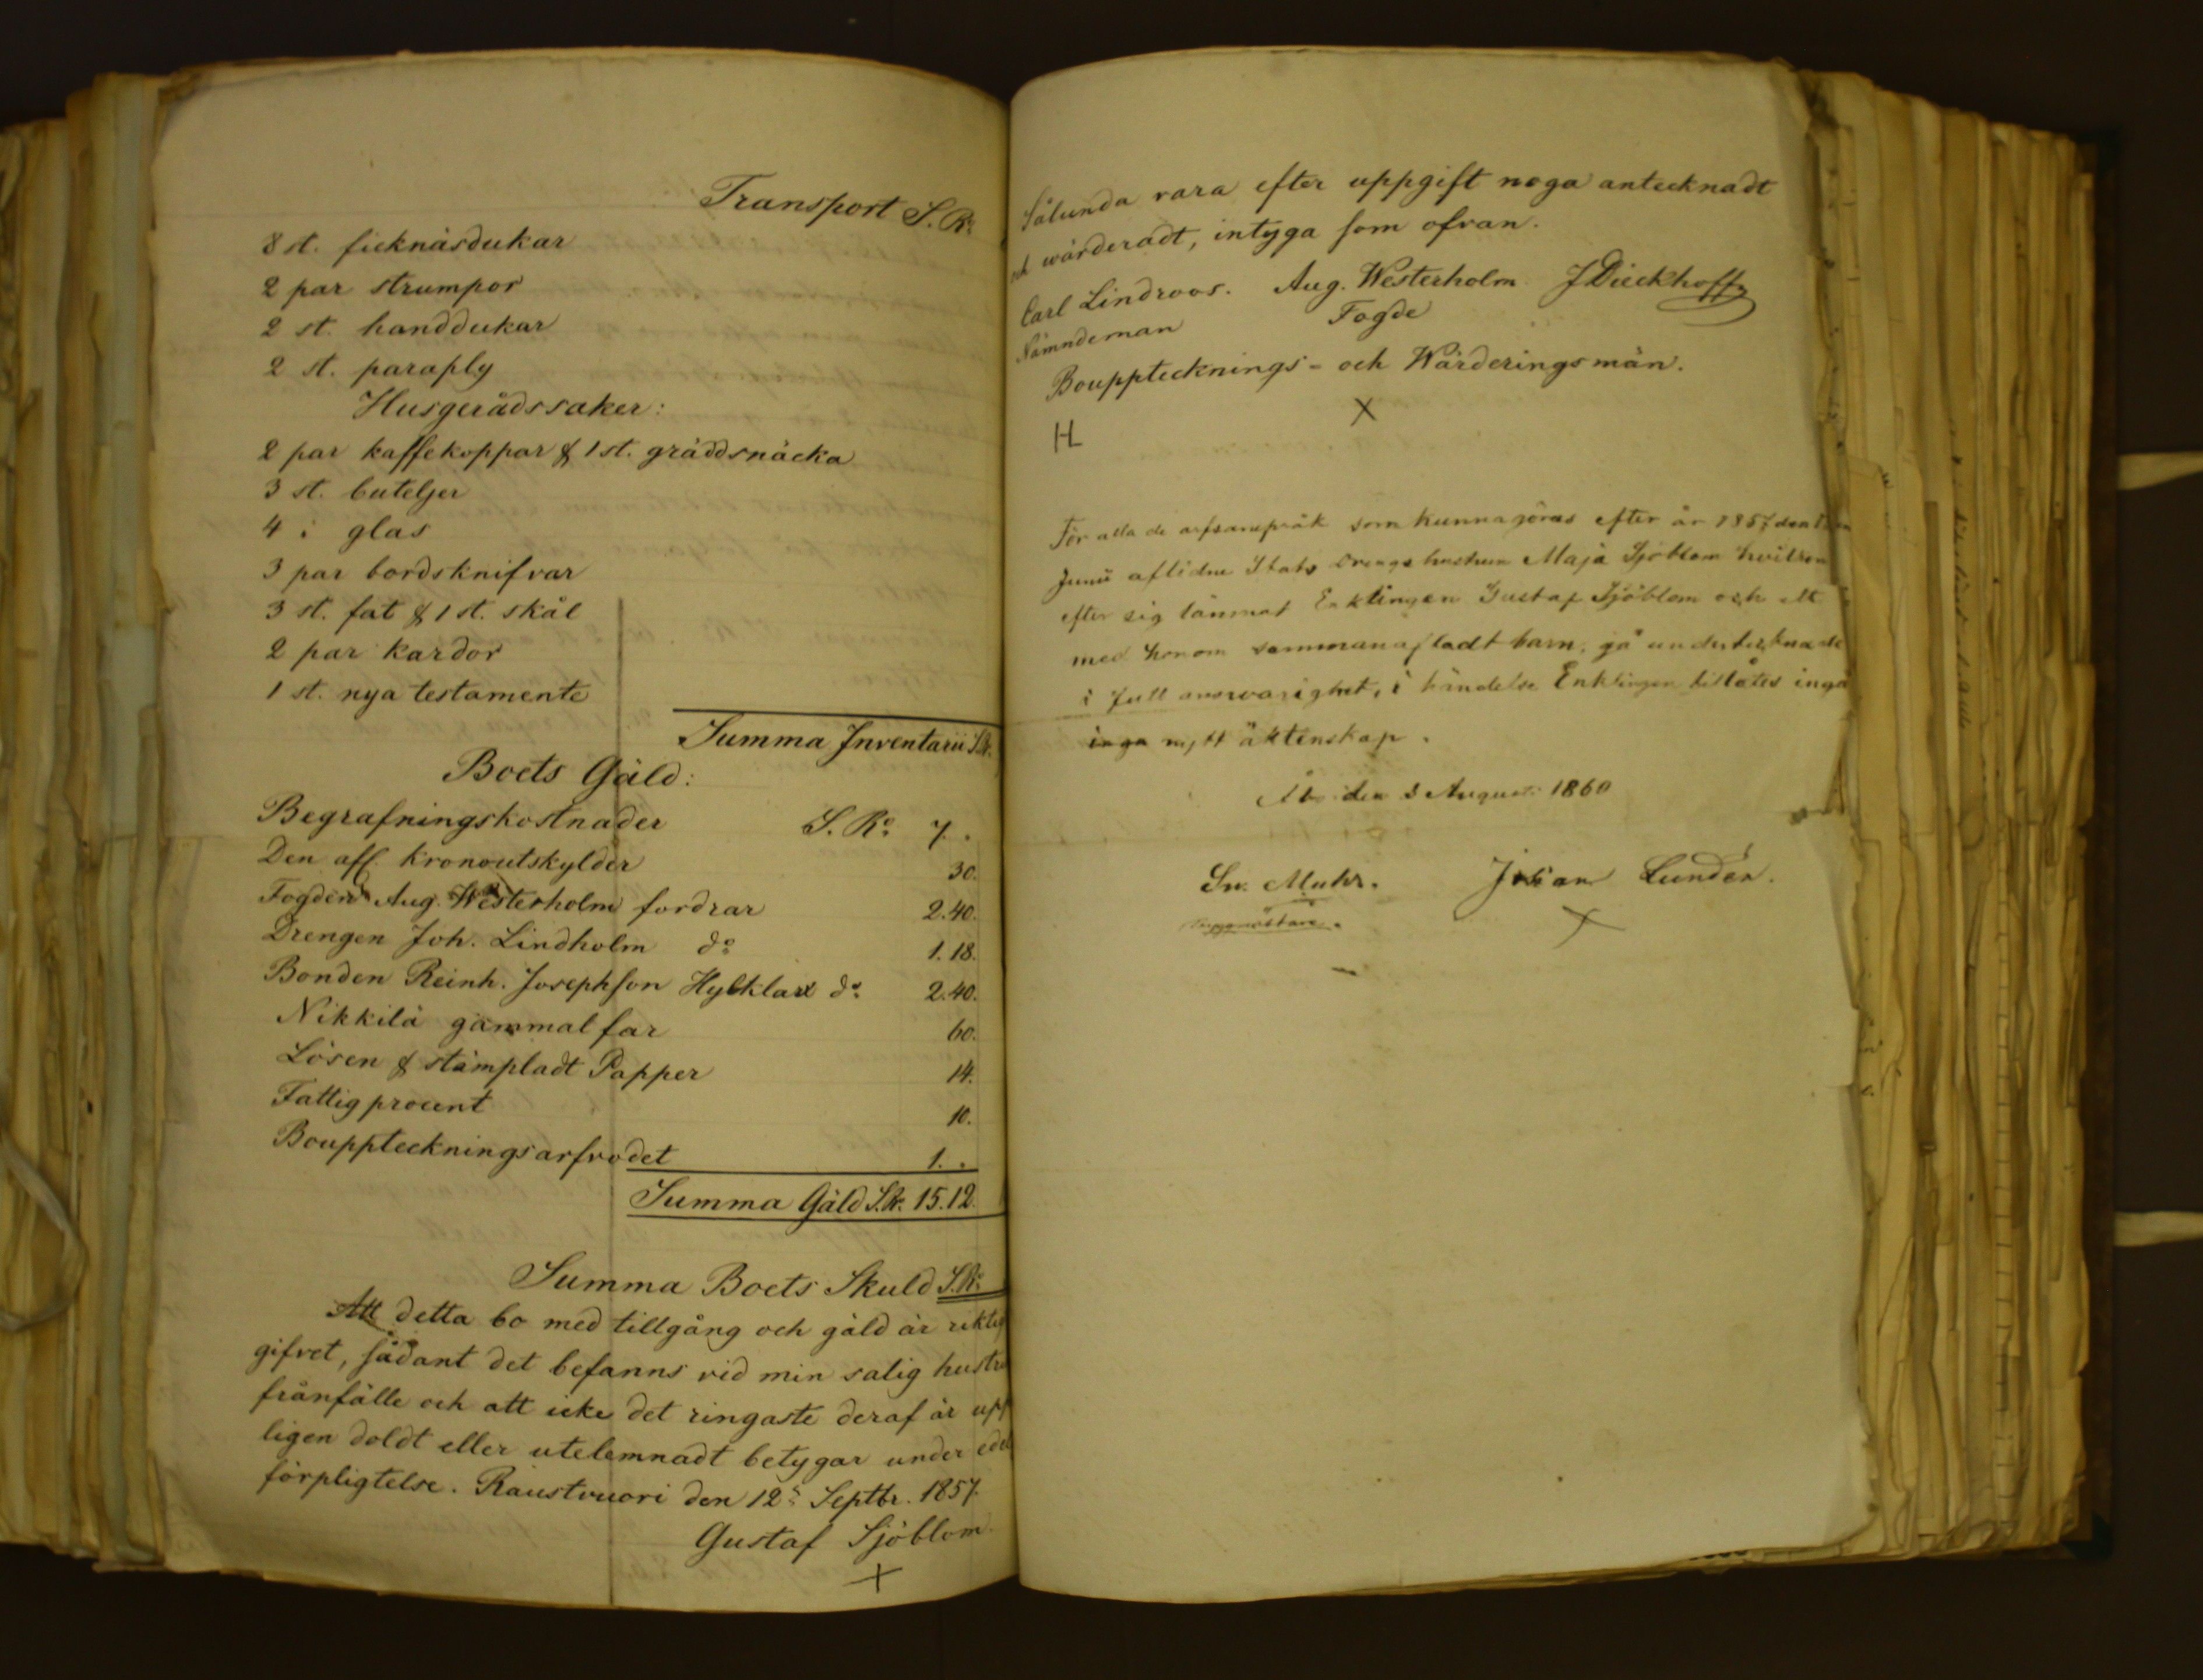 Transport S. Rº
8 st. ficknäsdukar
2 par strumpor
2 st. handdukar
2 st. paraply
Husgerådssaker:
2 par kaffekoppar & 1 st. gräddsnäcka
3 st. buteljer
4 : glas
3 par bordsknifvar
3 st. fat & 1 st. skål
2 par kardor
1 st. nya testamente
Summa Inventarii S.R.
Boets Gäld:
Begrafningskostnader S. Rº 7. .
Den afl. kronoutskylder 30.
Fogden Aug. Westerholm fordrar 2.40.
Drengen Joh. Lindholm dº 1.18.
Bonden Reinh. Josephson dº 2.40.
Nikkilä gammal far 60.
Lösen & stämpladt Papper 14.
Fattigprocent 10.
Bouppteckningsarfvodet 1. .
Summa Gäld S.R. 15.12.
Summa Boets Skuld S.Rº
Att detta bo med tillgång och gäld är riktig
gifvet, sådant det befanns vid min salig hustru
frånfälle och att icke det ringaste deraf är upp
ligen doldt eller utelemnadt betygar under ede
förpligtelse. Raustvuori den 12. Septbr. 1857.
Gustaf Sjöblom
X
Sålunda vara efter uppgift noga antecknadt
och wärderadt, intyga som ofvan.
Carl Lindroos. Aug. Westerholm J Dieckhoff
Nämndeman Fogde
Bouppteknings- och Wärderingsmän.
H X
För alla de arfsanspråk som kunna göras efter år 1857 den
Junii aflidne Stats Drengs hustrun Maja Sjöblom hvilken
efter sig lämnat Enklingen Gustaf Sjöblom och ett
med honom sammanafladt barn, gå undertecknade
i full answarighet, i händelse Enklingen tillåtes ingå
inga nytt äktenskap.
Åbo den 3 Augusti 1860
Sv. Muhr. Lundén.
X